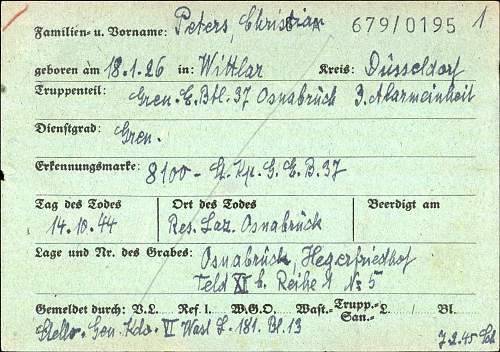 Familien- u. Vorname: Peters, Christian 679/0195 1
geboren am 18.1.26 in: Wittlar Kreis: Düsseldorf
Truppenteil: Gren. E. Btl. 37 Osnabrück 3. Alarmeinheit
Dienstgrad: Gren.
Erkennungsmarke: 8100 - St. Kp. G. E. B. 37
Tag des Todes Ort des Todes Beerdigt am
14.10.44 Res. Laz. Osnabrück
Lage und Nr. des Grabes: Osnabrück, Hegerfriedhof
Feld XI b. Reihe 1 No 5
Gemeldet durch: V.L. Ref I. W.G.O. Wast.- Trupp.- San.- L. / Bl.
Stellv. Gen. Kdo. VI Wast L. 181. Bl. 13
7.2.45